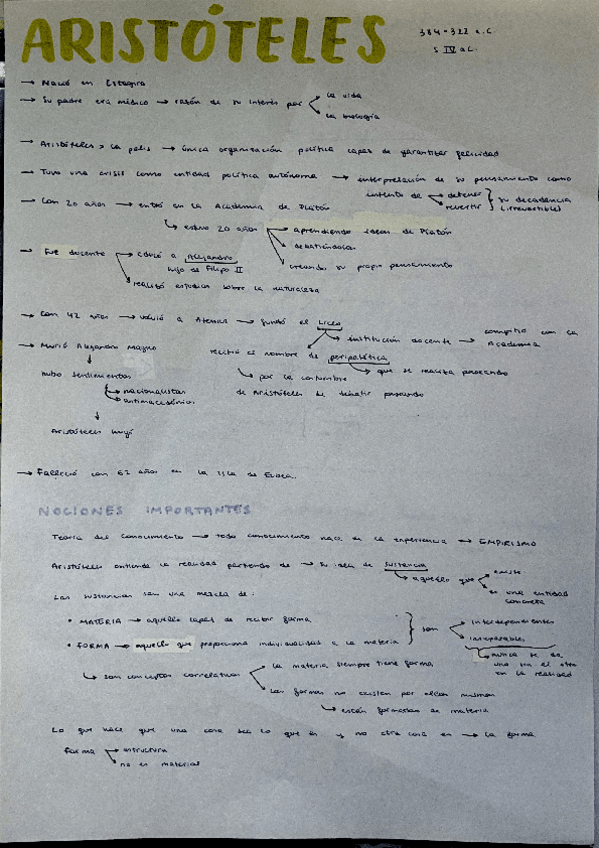 ARISTÓTELES
384-322 a.C.
S IV a.C.
→ Nació en Estagira
→ Su padre era médico → razón de su interés por la vida
la biología
→ Aristóteles > la polis → única organización política capaz de garantizar felicidad
→ Tuvo una crisis como entidad política autónoma → interpretación de su pensamiento como
intento de → detener
revertir } su decadencia
(irreversible)
→ Con 20 años → entró en la Academia de Platón
↳ estuvo 20 años → aprendiendo ideas de Platón
debatiéndolas
creando su propio pensamiento
→ Fue docente → educó a Alejandro
hijo de Filipo II
realizó estudios sobre la naturaleza
→ Con 42 años → volvió a Atenas → fundó el Liceo
institución docente → compitió con la
Academia
recibió el nombre de peripatética
que se realiza paseando
↳ por la costumbre
de Aristóteles de debatir paseando
→ Murió Alejandro Magno
hubo sentimientos
nacionalistas
antimacedonios
Aristóteles huyó
→ Falleció con 62 años en la isla de Eubea.
NOCIONES IMPORTANTES
Teoría del conocimiento → todo conocimiento nace de la experiencia → EMPIRISMO
Aristóteles entiende la realidad partiendo de → su idea de sustancia
↳ aquello que existe
es una entidad
concreta
Las sustancias son una mezcla de:
• MATERIA → aquello capaz de recibir forma
• FORMA → aquello que proporciona individualidad a la materia
} son interdependientes
inseparables
↳ nunca se da
uno sin el otro
en la realidad
↳ son conceptos correlativos
la materia siempre tiene forma
las formas no existen por ellas mismas
↳ están formadas de materia
Lo que hace que una cosa sea lo que es y no otra cosa es → la forma
forma → estructura
no es material